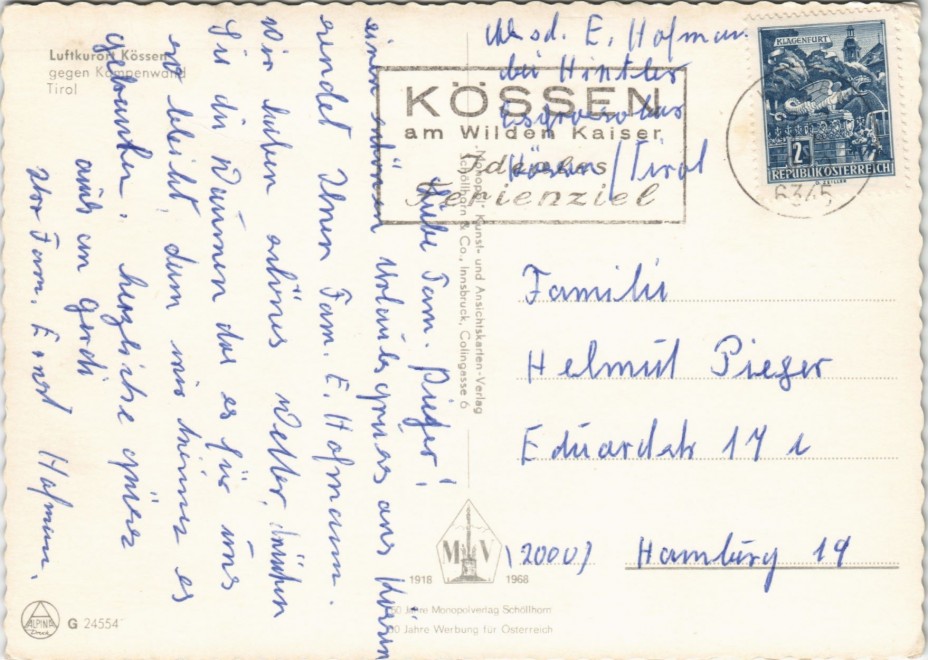 Luftkurort Kössen
gegen Kampenwand
Tirol
Abs d. E. Hofman
bei Hintler
Kössen / Tirol
KÖSSEN
am Wilden Kaiser
Ideales
Ferienziel
KLAGENFURT
2S
REPUBLIK ÖSTERREICH
6345
Liebe Fam. Pieger!
einen schönen Urlaubsgruss aus Kössen
sendet Ihnen Fam. E. Hofmann.
wir haben schönes Wetter,
Sie die Daumen das es für uns
so bleibt, denn wir können es
gebrauchen. herzliche grüsse
auch an gerdi
Ihre Fam. Ernst Hofmann.
Monopol: Kunst- und Ansichtskarten-Verlag
Schöllhorn & Co., Innsbruck, Colingasse 6
Familie
Helmut Pieger
Eduardstr 17 c
(2000) Hamburg 19
M V
1918 1968
50 Jahre Monopolverlag Schöllhorn
50 Jahre Werbung für Österreich
ALPINA
Druck
G 24554